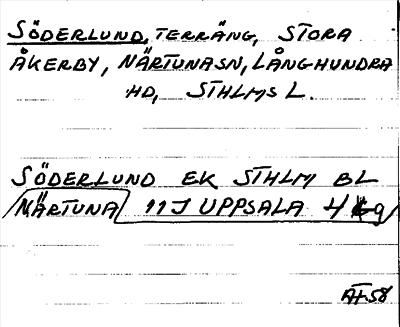 SÖDERLUND, TERRÄNG, STORA
ÅKERBY, NÄRTUNA SN, LÅNGHUNDRA
HD, STHLMS L.
SÖDERLUND EK STHLM BL
NÄRTUNA 11J UPPSALA 4 g
ÄF58